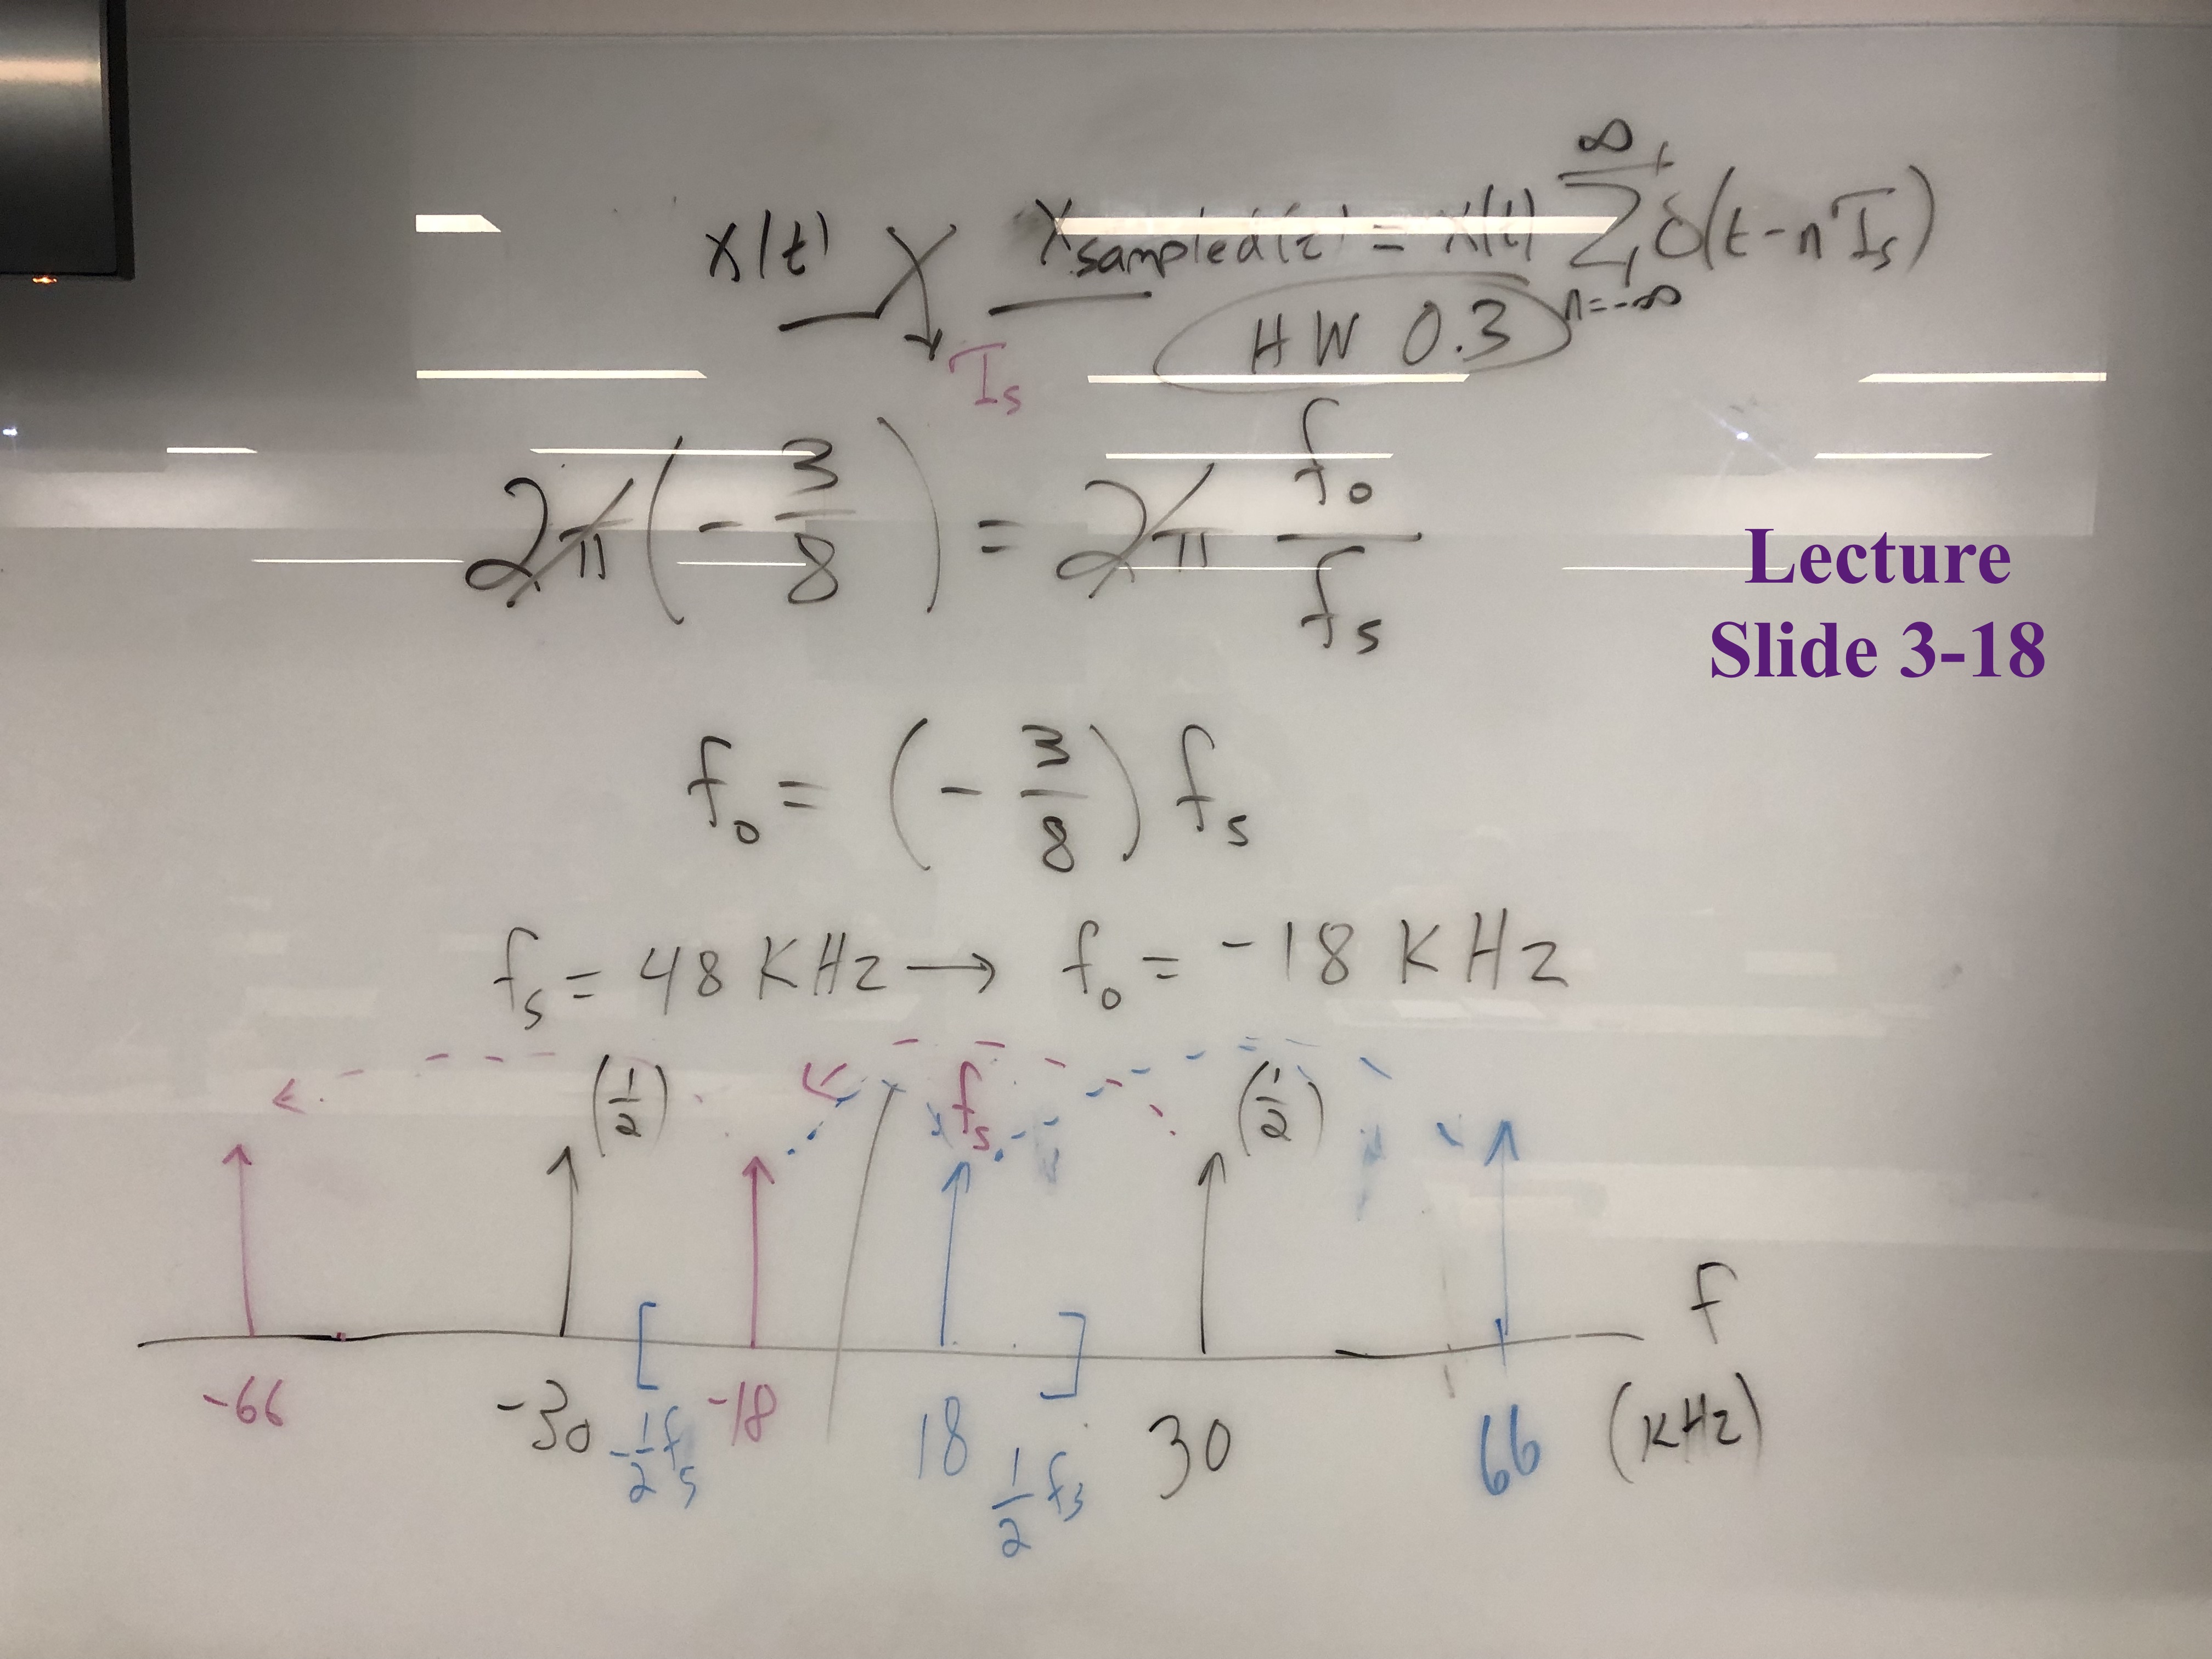 x(t) x_sampled(t) = x(t) ∑ δ(t - nT_s)
∞
n=-∞
HW 0.3
T_s
2π(-3/8) = 2π f_0/f_s
Lecture
Slide 3-18
f_0 = (-3/8) f_s
f_s = 48 KHz → f_0 = -18 KHz
(1/2) f_s (1/2)
f
-66 -30 -1/2 f_s -18 18 1/2 f_s 30 66 (KHz)